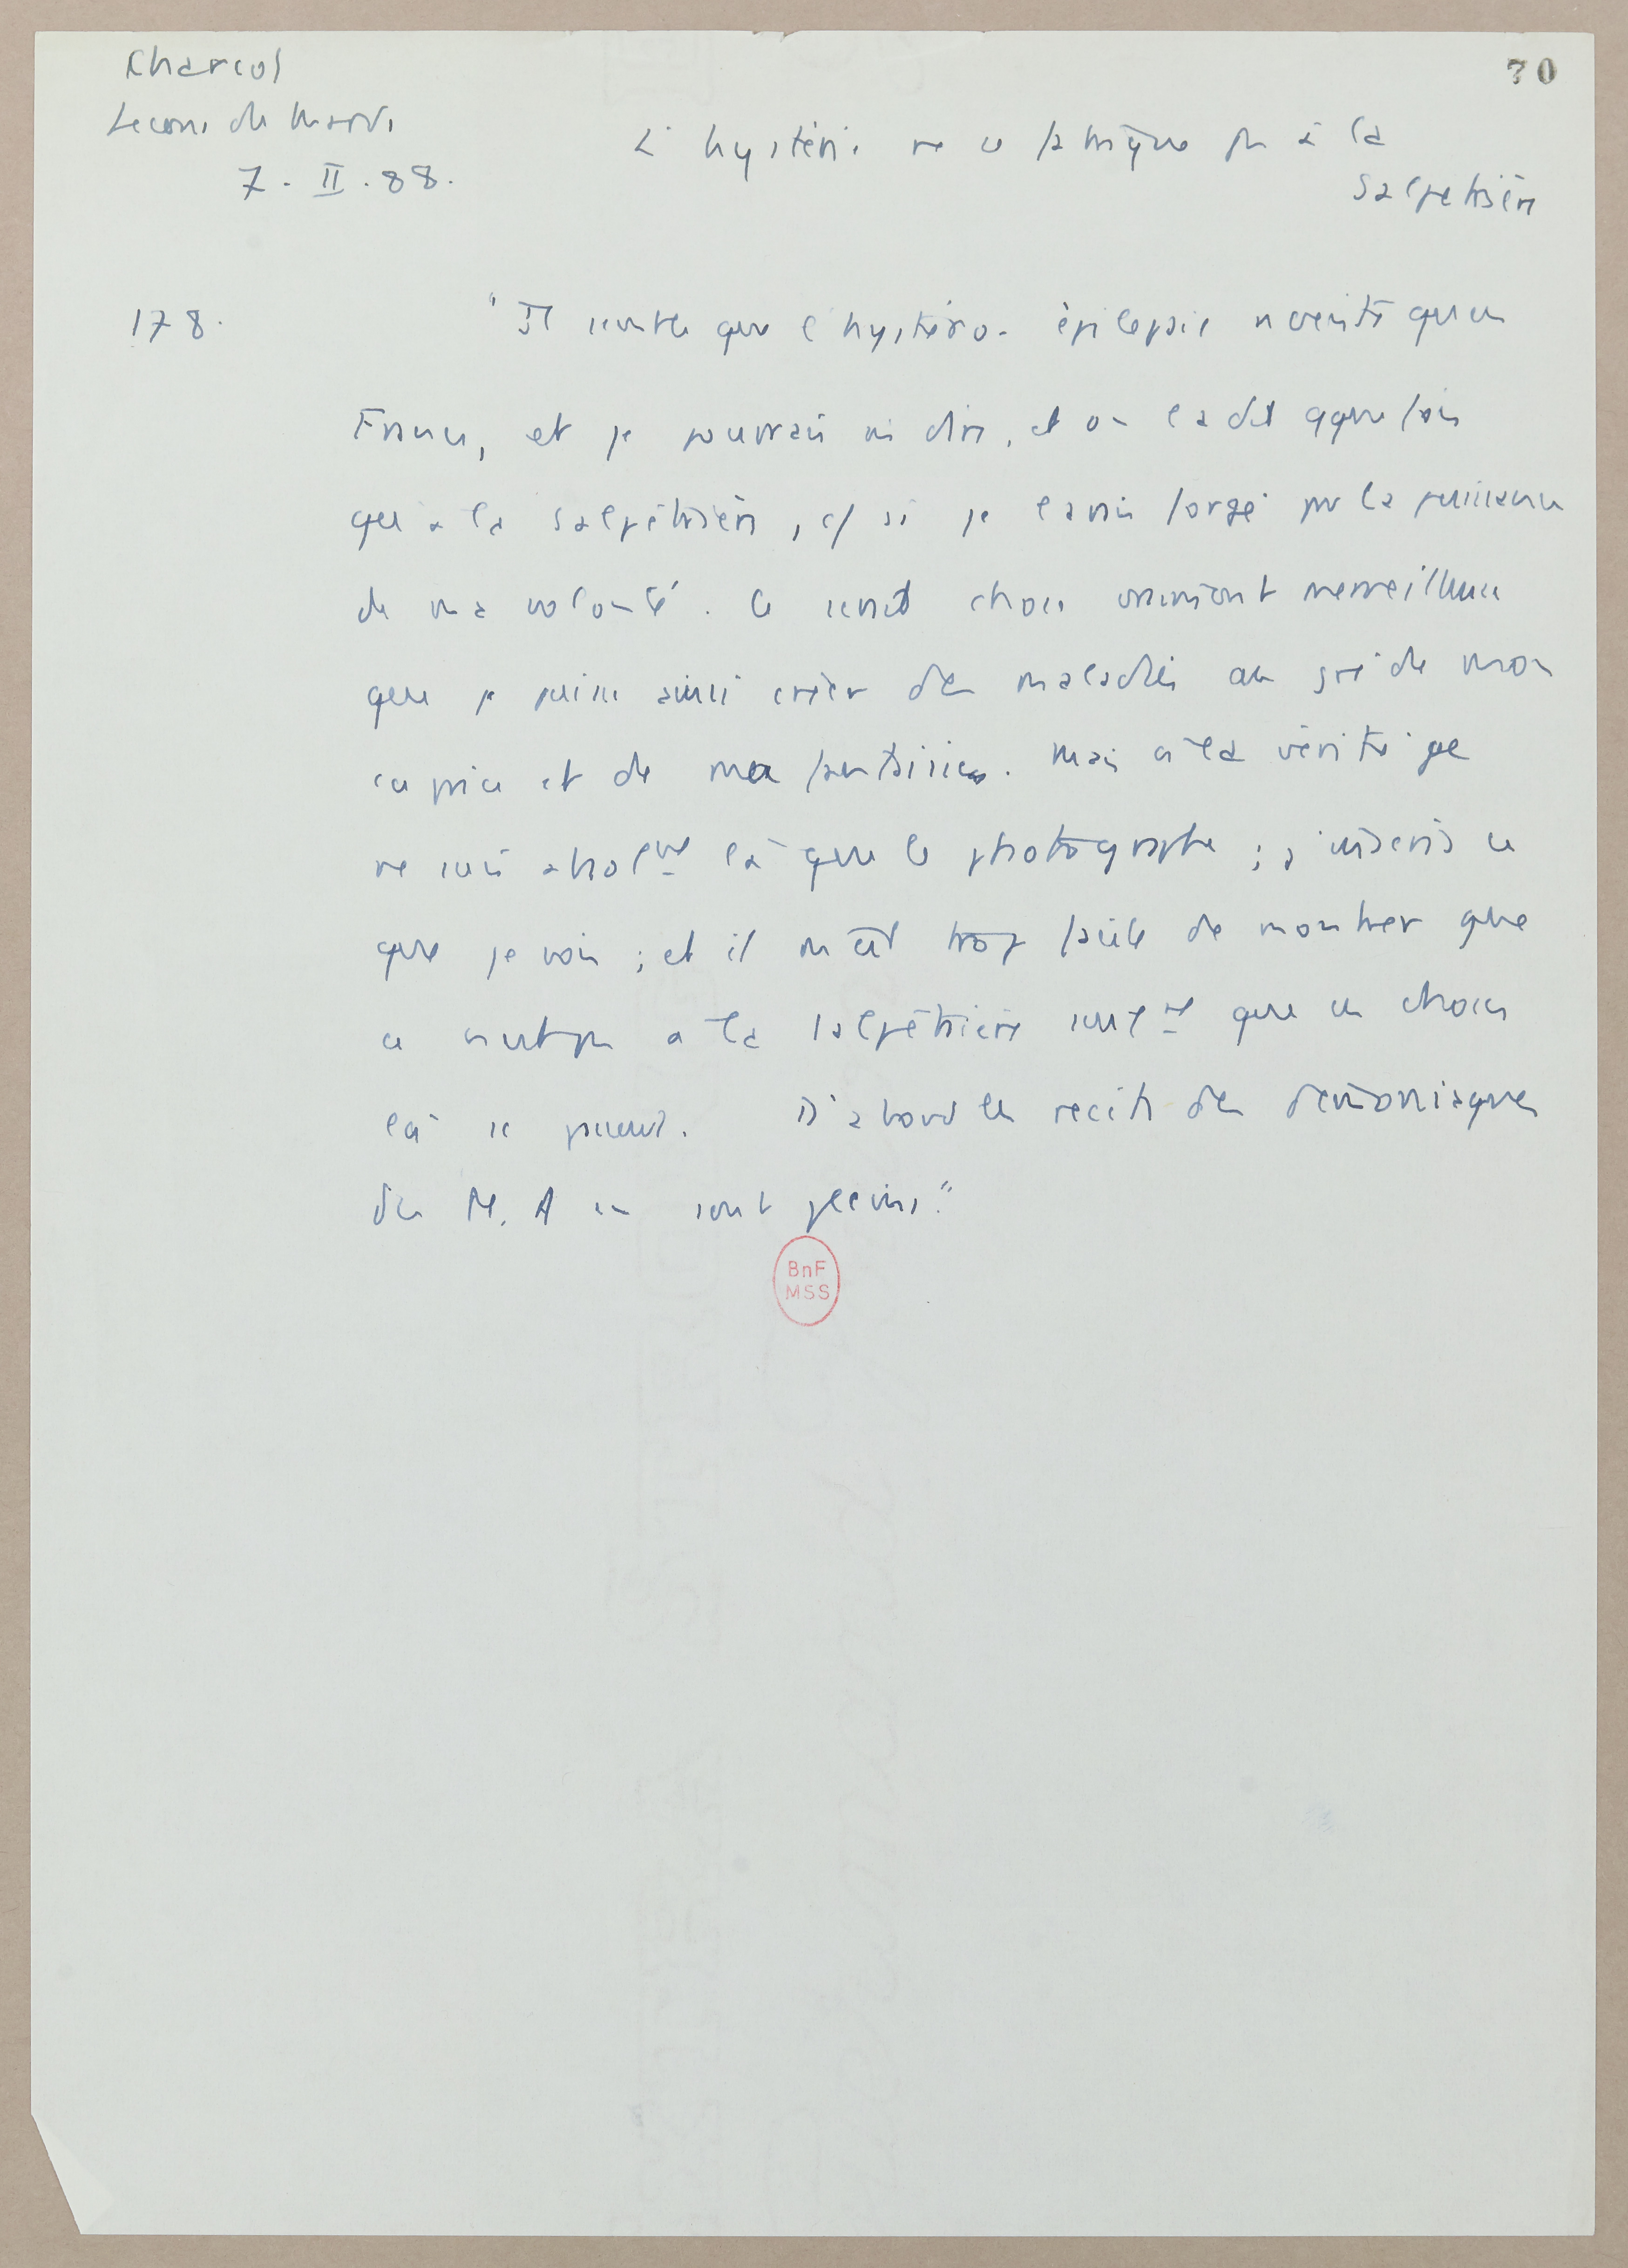 Charcot
Leçons du Mardi
7. II. 88.
70
L'hystérie ne se fabrique pas à la
Salpêtrière
178.
"Il semble que l'hystéro-épilepsie n'existe qu'en
France, et je pourrais ici dire, et on l'a dit qque fois
qu'à la Salpêtrière, c/ si je l'avais forgé par la puissance
de ma volonté. Ce serait chose vraiment merveilleuse
que je puisse ainsi créer des maladies au gré de mon
caprice et de ma fantaisie. Mais à la vérité je
ne suis absolnt là que le photographe ; j'inscris ce
que je vois ; et il m'est trop facile de montrer que
ce n'est pas à la Salpêtrière seult que ces choses
là se passent. D'abord les récits des démoniaques
du M. A en sont pleins."
BnF
MSS